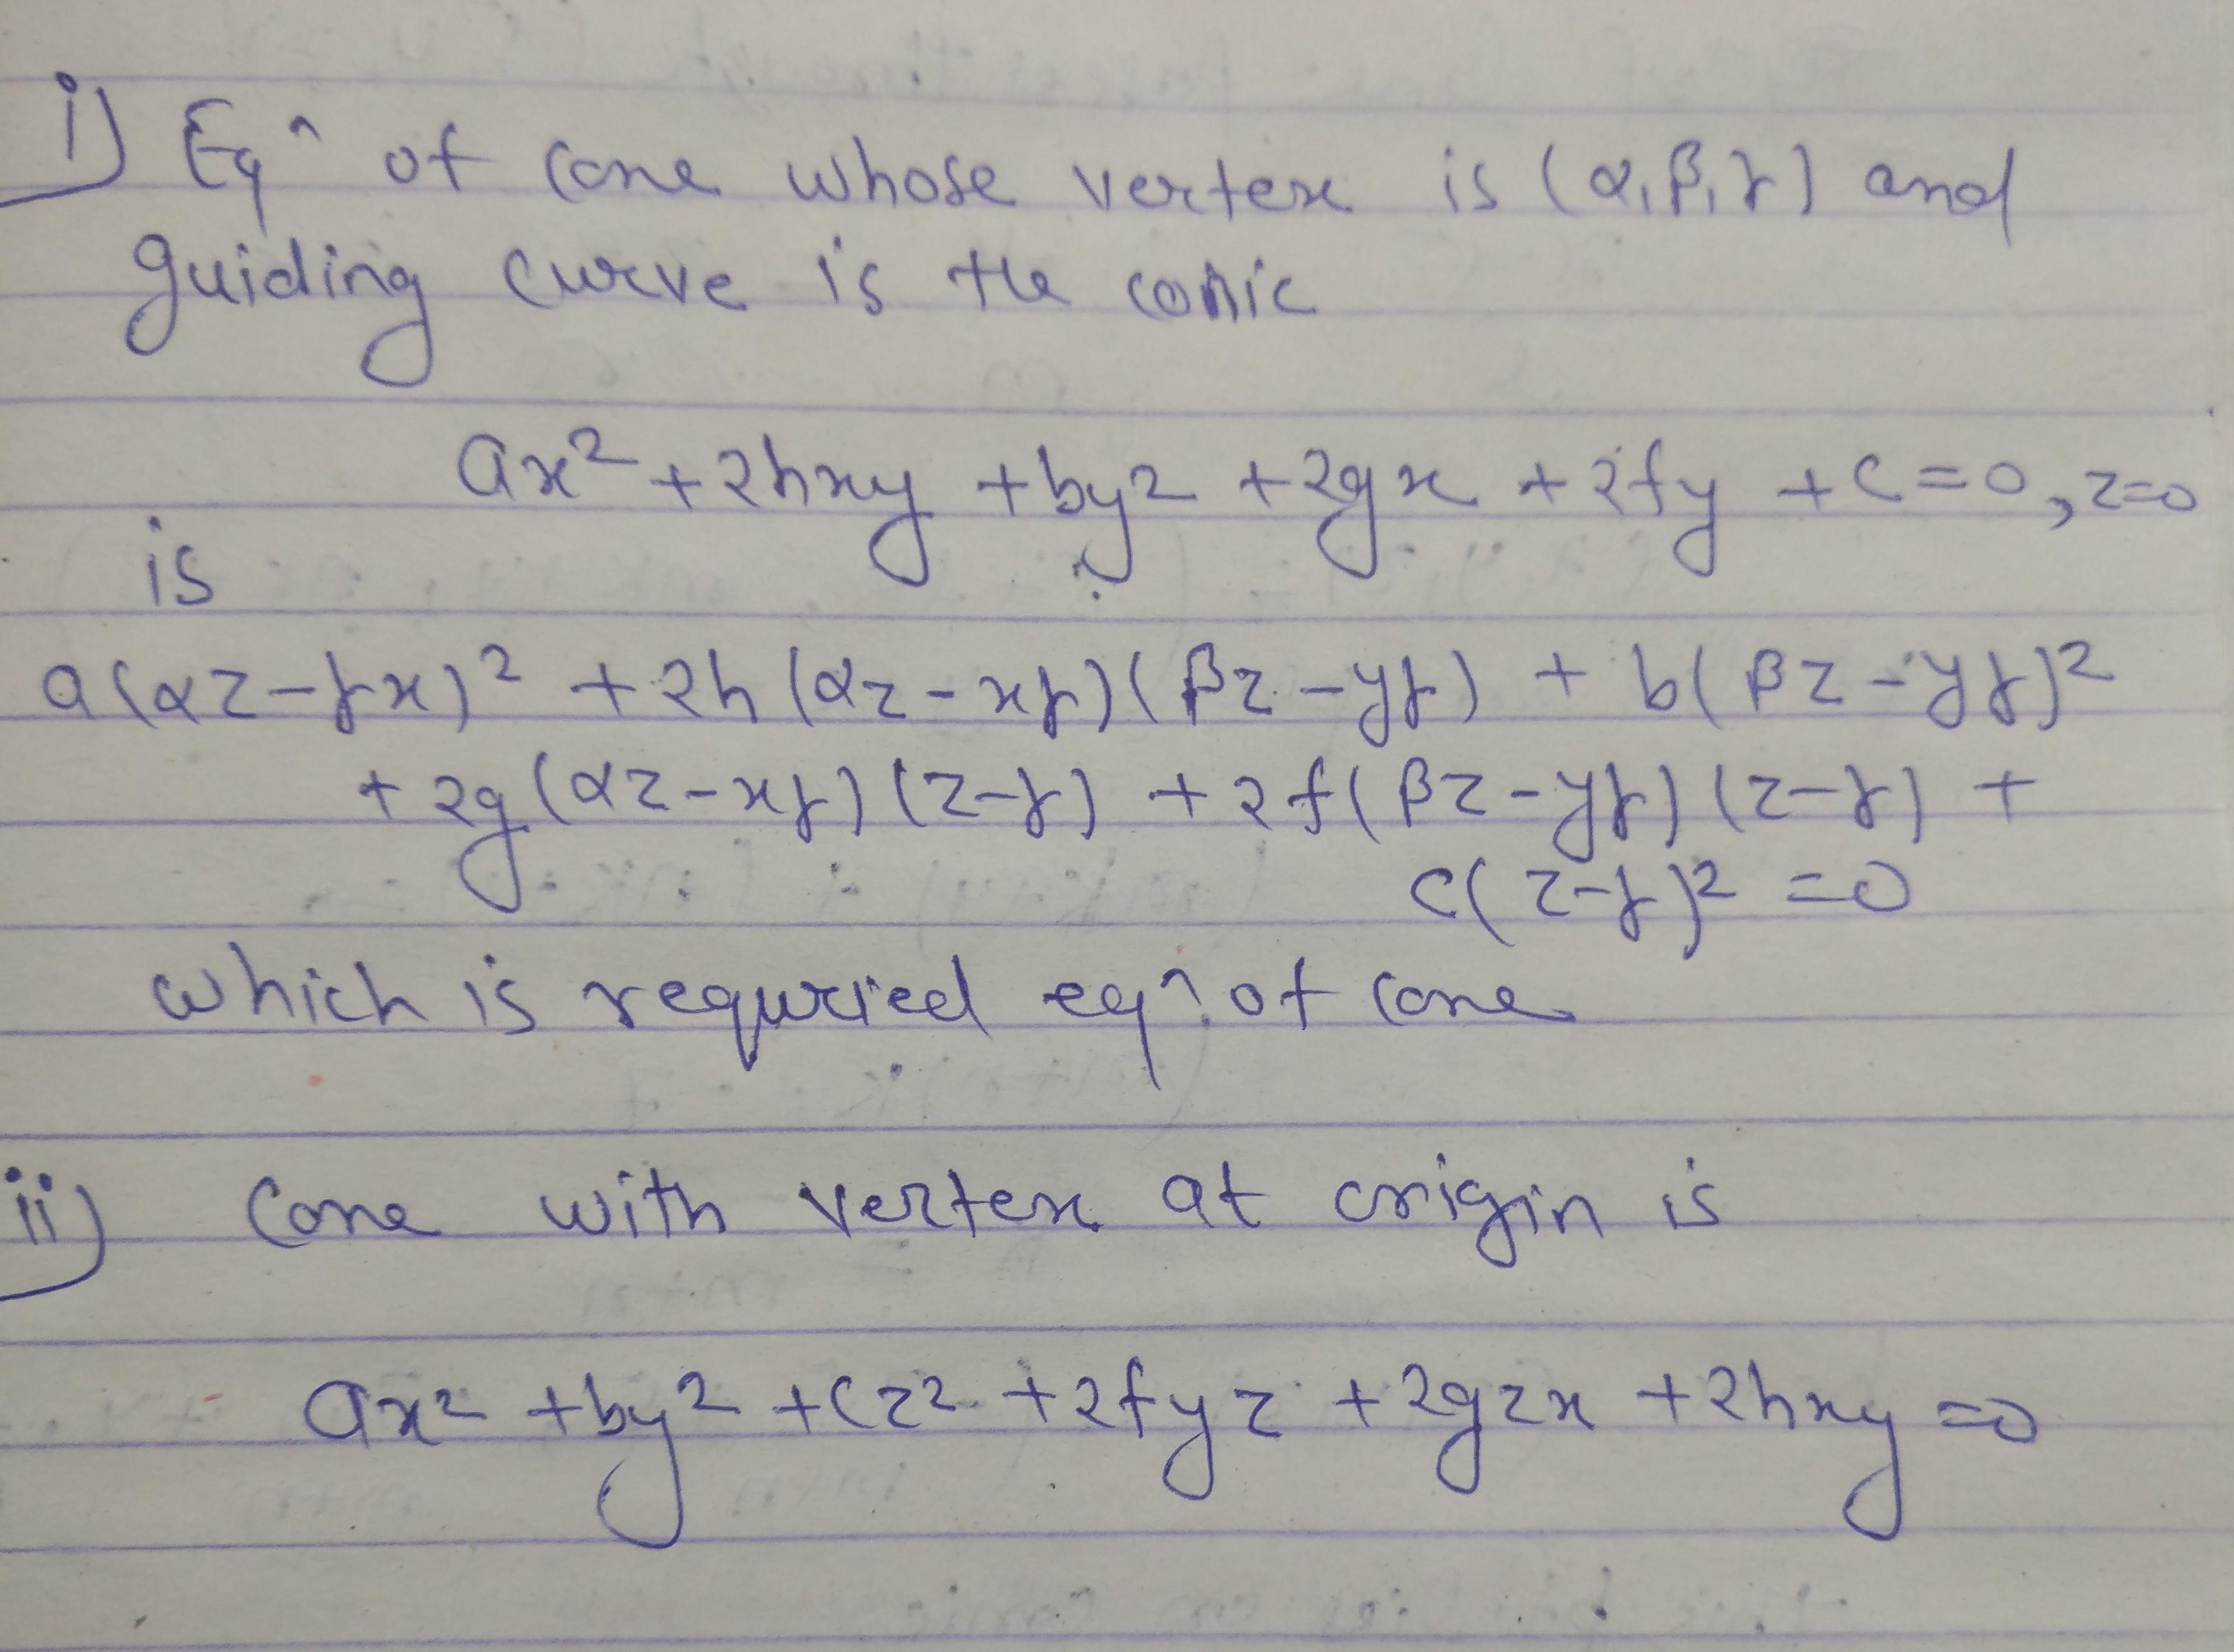 i) Eqⁿ of cone whose vertex is (α, β, γ) and
guiding curve is the conic
ax² + 2hxy + by² + 2gx + 2fy + c = 0, z=0
is
a(αz - γx)² + 2h(αz - xγ)(βz - yγ) + b(βz - yγ)²
+ 2g(αz - xγ)(z-γ) + 2f(βz - yγ)(z-γ) +
c(z-γ)² = 0
which is requried eqⁿ of cone
ii) Cone with vertex at origin is
ax² + by² + cz² + 2fyz + 2gzx + 2hxy = 0